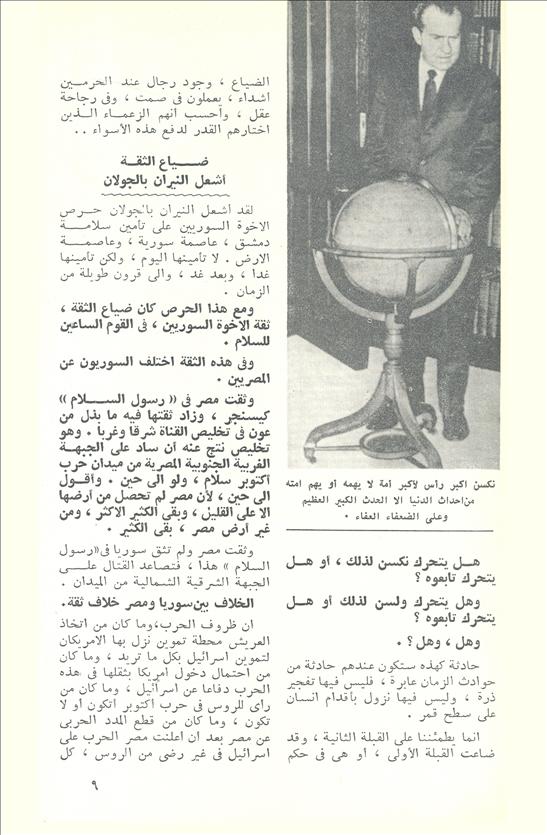 نكسن اكبر رأس لاكبر أمة لا يهمه أو يهم امته
من أحداث الدنيا الا الحدث الكبير العظيم
وعلى الضعفاء العفاء .
هـل يتحرك نكسن لذلك ، أو هـل
يتحرك تابعوه ؟
وهل يتحرك ولسن لذلك أو هـل
يتحرك تابعوه ؟
وهل ، وهل ؟ .
حادثة كهذه ستكون عندهم حادثة من
حوادث الزمان عابرة ، فليس فيها تفجير
ذرة ، وليس فيها نزول بأقدام انسان
على سطح قمر .
انما يطمئننا على القبلة الثانية ، وقد
ضاعت القبلة الأولى ، أو هى فى حكم
الضياع ، وجود رجال عند الحرمـين
أشداء ، يعملون فى صمت ، وفى رجاحة
عقل ، وأحسب أنهم الزعمـاء الـذين
اختارهم القدر لدفع هذه الأسواء ..
ضـيـاع الثقـة
أشعل النيران بالجولان
لقد أشعل النيران بالجولان حـرص
الاخوة السوريين على تأمين سلامـة
دمشق ، عاصمة سورية ، وعاصمـة
الارض . لا تأمينها اليوم ، ولكن تأمينها
غدا ، وبعد غد ، والى قرون طويلة من
الزمان .
ومع هذا الحرص كان ضياع الثقة ،
ثقة الاخوة السوريين ، فى القوم الساعين
للسلام .
وفى هذه الثقة اختلف السوريون عن
المصريين .
وثقت مصر فى « رسول الســلام »
كيسنجر ، وزاد ثقتها فيه ما بذل من
عون فى تخليص القناة شرقا وغربا . وهو
تخليص نتج عنه أن ساد على الجبهـة
الغربية الجنوبية المصرية من ميدان حرب
أكتوبر سلام ، ولو الى حين . وأقـول
الى حين ، لأن مصر لم تحصل من أرضها
الا على القليل ، وبقى الكثير الاكثر ، ومن
غير أرض مصر ، بقى الكثير .
وثقت مصر ولم تثق سوريا فى «رسول
السلام » هذا ، فتصاعد القتال علـى
الجبهة الشرقية الشمالية من الميدان .
الخلاف بين سوريا ومصر خلاف ثقة.
ان ظروف الحرب، وما كان من اتخاذ
العريش محطة تموين نزل بها الامريكان
لتموين اسرائيل بكل ما تريد ، وما كان
من احتمال دخول أمريكا بثقلها فى هذه
الحرب دفاعا عن اسرائيل ، وما كان من
رأى للروس فى حرب أكتوبر أتكون أو لا
تكون ، وما كان من قطع المدد الحربى
عن مصر بعد ان أعلنت مصر الحرب على
اسرائيل فى غير رضى من الروس ، كل
٩